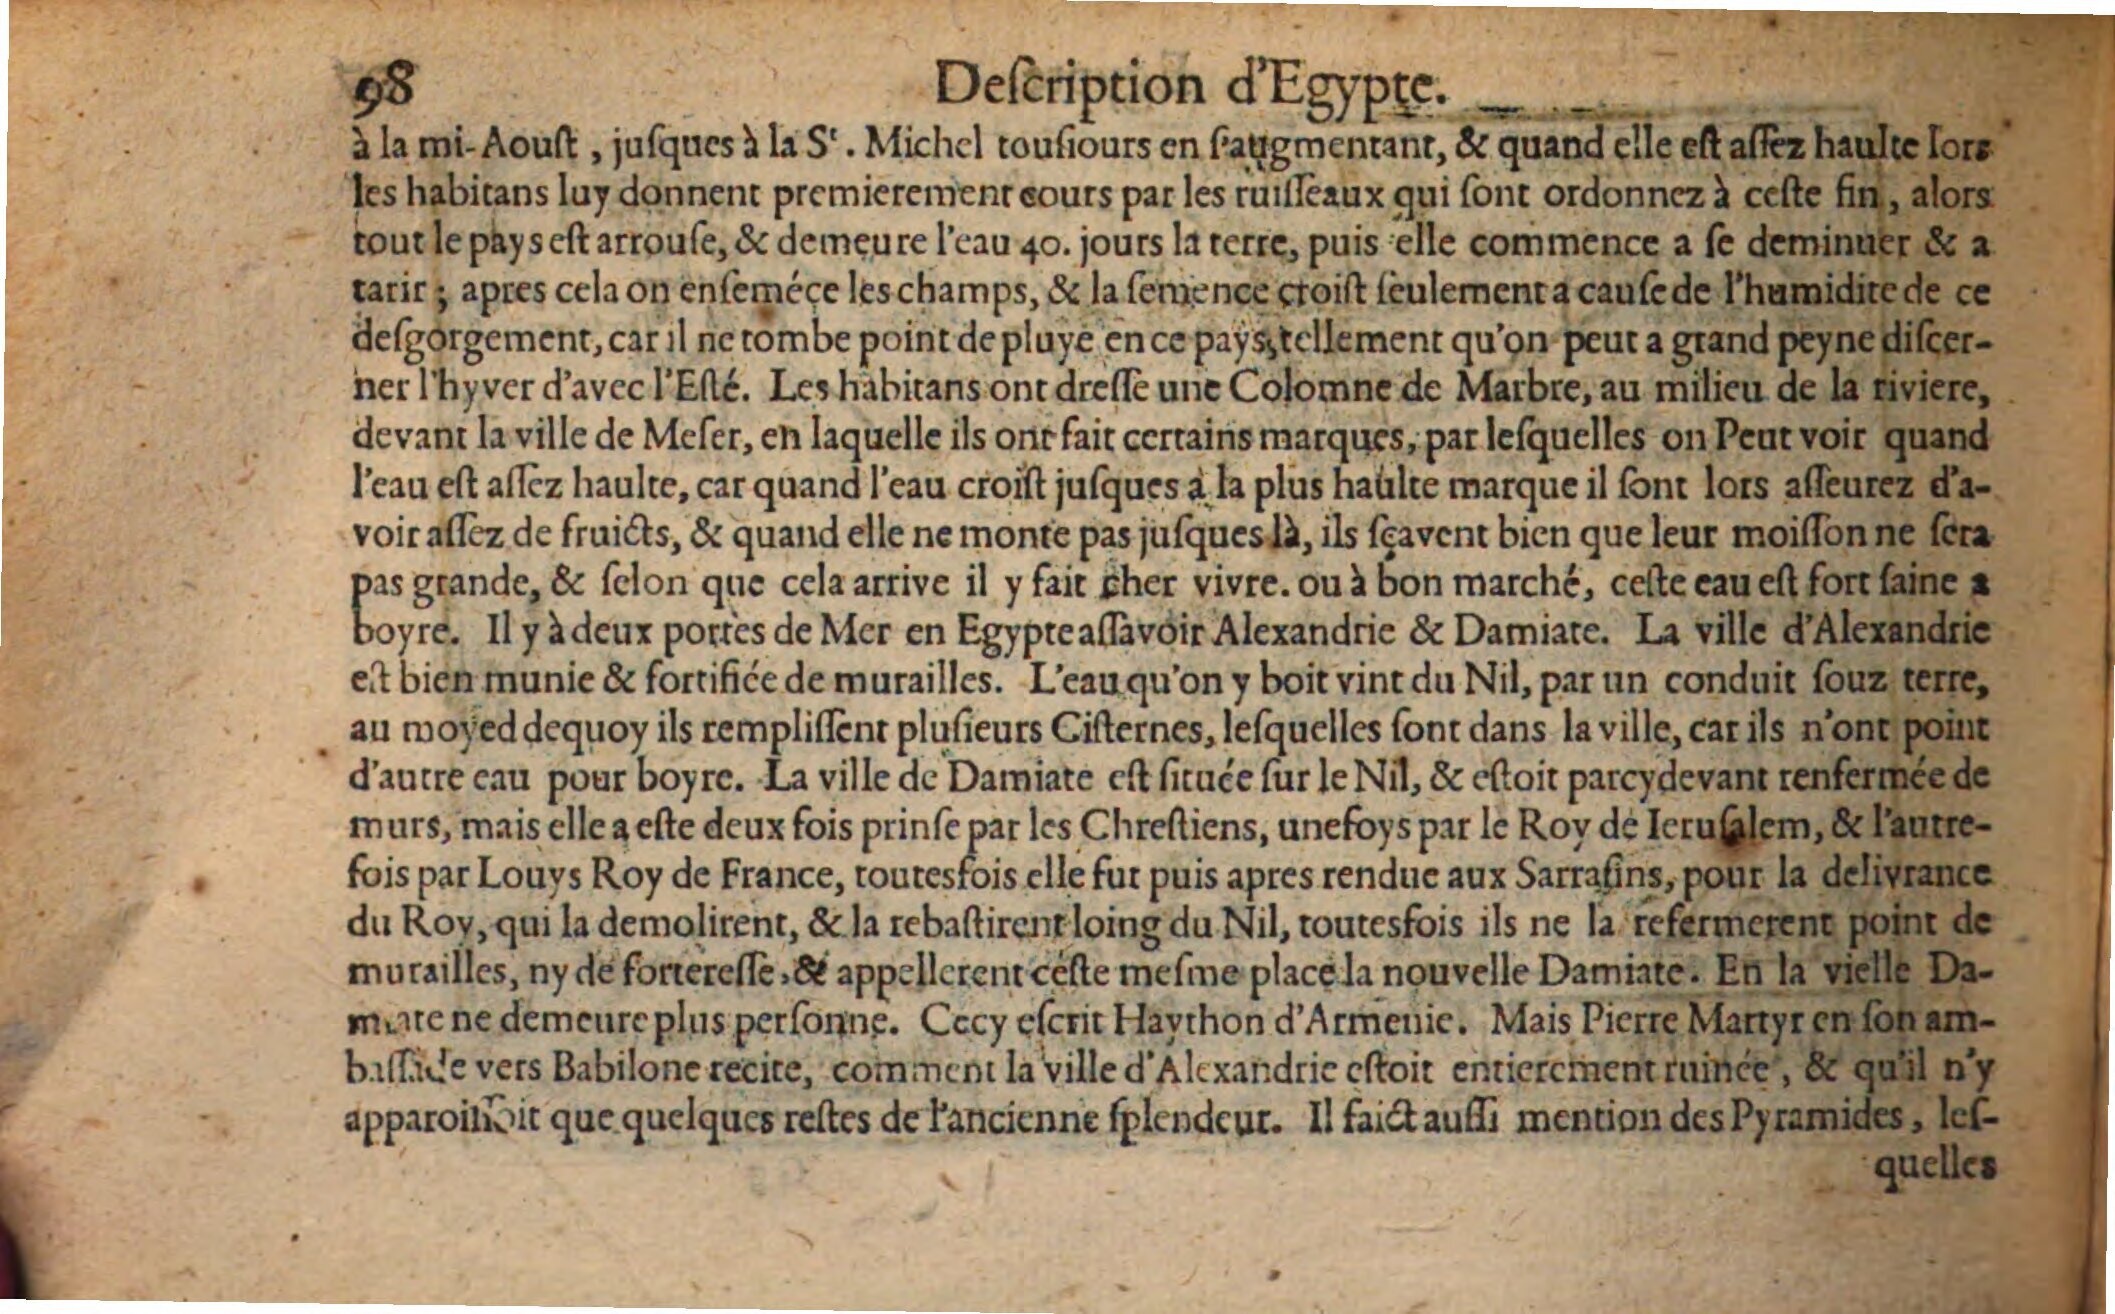 98 Deſcription d'Egypte.
à la mi-Aouſt, juſques à la Sᵗ. Michel touſiours en ſ'augmentant, & quand elle eſt aſſez haulte lors
les habitans luy donnent premierement cours par les ruiſſeaux qui ſont ordonnez à ceſte fin, alors
tout le pays eſt arrouſe, & demeure l'eau 40. jours la terre, puis elle commence a ſe deminuer & a
tarir; apres cela on enſeméçe les champs, & la ſemence croiſt ſeulement a cauſe de l'humidite de ce
deſgorgement, car il ne tombe point de pluye en ce pays, tellement qu'on peut a grand peyne diſcer-
ner l'hyver d'avec l'Eſté. Les habitans ont dreſſe une Colomne de Marbre, au milieu de la riviere,
devant la ville de Meſer, en laquelle ils ont fait certains marques, par leſquelles on Peut voir quand
l'eau eſt aſſez haulte, car quand l'eau croiſt juſques a la plus haulte marque il ſont lors aſſeurez d'a-
voir aſſez de fruicts, & quand elle ne monte pas juſques là, ils ſçavent bien que leur moiſſon ne ſera
pas grande, & ſelon que cela arrive il y fait cher vivre. ou à bon marché, ceſte eau eſt fort ſaine a
boyre. Il y à deux portes de Mer en Egypte aſſavoir Alexandrie & Damiate. La ville d'Alexandrie
eſt bien munie & fortifiée de murailles. L'eau qu'on y boit vint du Nil, par un conduit ſouz terre,
au moyed dequoy ils rempliſſent pluſieurs Ciſternes, leſquelles ſont dans la ville, car ils n'ont point
d'autre eau pour boyre. La ville de Damiate eſt ſituée ſur le Nil, & eſtoit parcydevant renfermée de
murs, mais elle a eſte deux fois prinſe par les Chreſtiens, unefoys par le Roy de Ieruſalem, & l'autre-
fois par Louys Roy de France, toutesfois elle fut puis apres rendue aux Sarraſins, pour la delivrance
du Roy, qui la demolirent, & la rebaſtirent loing du Nil, toutesfois ils ne la refermerent point de
murailles, ny de fortereſſe, & appellerent ceſte meſme place la nouvelle Damiate. En la vielle Da-
miate ne demeure plus perſonne. Cecy eſcrit Haython d'Armenie. Mais Pierre Martyr en ſon am-
baſſade vers Babilone recite, comment la ville d'Alexandrie eſtoit entierement ruinée, & qu'il n'y
apparoiſſoit que quelques reſtes de l'ancienne ſplendeur. Il faict auſſi mention des Pyramides, leſ-
quelles